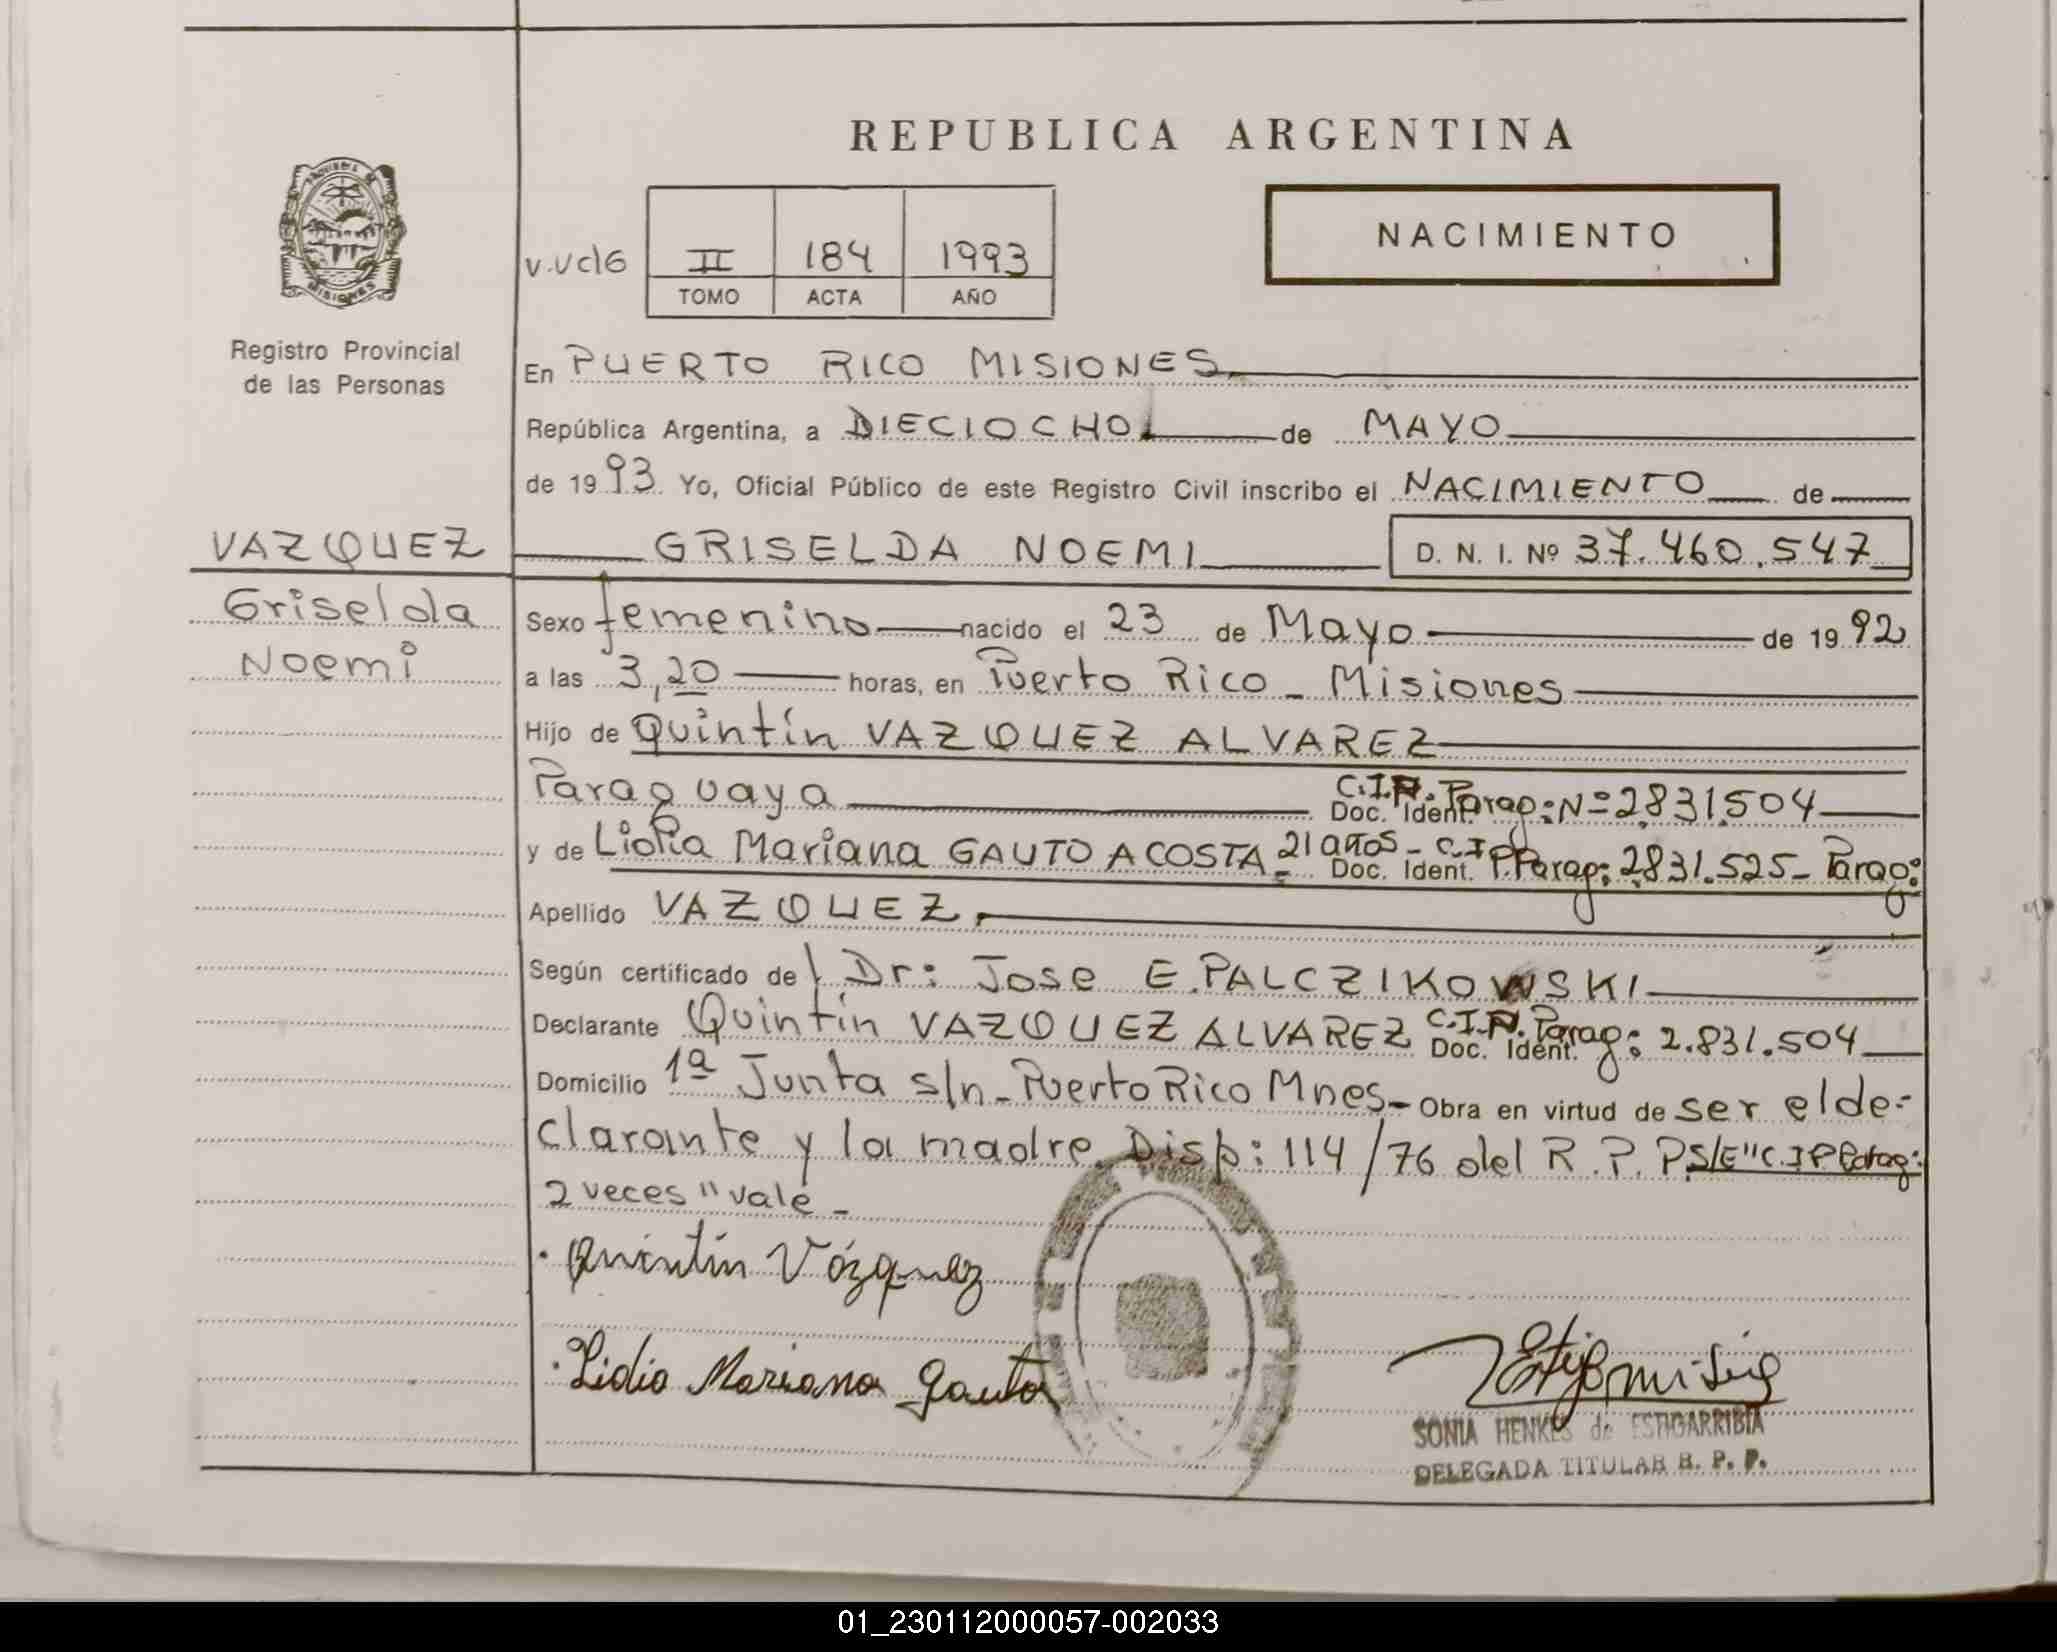 REPUBLICA ARGENTINA
PROVINCIA DE
MISIONES
Registro Provincial
de las Personas
NACIMIENTO
II 184 1993
TOMO ACTA AÑO
En PUERTO RICO MISIONES
República Argentina, a DIECIOCHO de MAYO
de 1993 Yo, Oficial Público de este Registro Civil inscribo el NACIMIENTO de
VAZQUEZ GRISELDA NOEMI D. N. I. Nº 37.460.547
Griselda
Noemi
Sexo femenino nacido el 23 de Mayo de 1992
a las 3,20 horas, en Puerto Rico - Misiones
Hijo de Quintín VAZQUEZ ALVAREZ
Paraguaya Doc. Ident. C.I.P. Parag: Nº 2831.504
y de Lidia Mariana GAUTO ACOSTA 21 años - Doc. Ident. C.I.P. Parag: 2831.525 - Parag:
Apellido VAZQUEZ.
Según certificado del Dr: Jose E. PALCZIKOWSKI
Declarante Quintín VAZQUEZ ALVAREZ Doc. Ident. C.I.P. Parag: 2.831.504
Domicilio 1ª Junta s/n - Puerto Rico Mnes - Obra en virtud de ser el de-
clarante y la madre. Disp: 114/76 del R.P.P. S/E "C.I.P. Parag:
2 veces" vale -
Quintín Vázquez
Lidia Mariana Gauto
SONIA HENKES de ESTIGARRIBIA
DELEGADA TITULAR R. P. P.
01_230112000057-002033